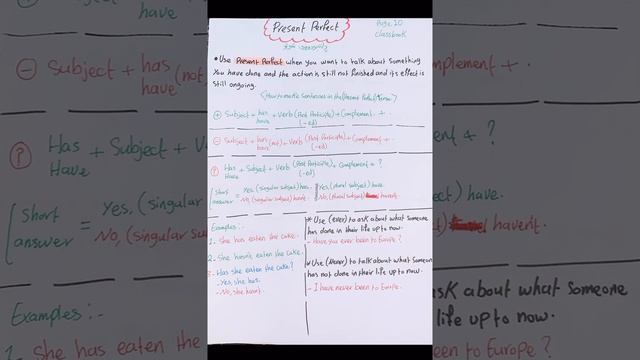 Present Perfect
Page 10
Classbook
* Use Present Perfect when you want to talk about something
You have done and the action is still not finished and its effect is
still ongoing.
<How to make Sentences in the Present Perfect Tense?>
+ Subject + has + Verb (Past Participle) + Complement + .
have (-ed)
- Subject + has (not) + Verb (Past Participle) + Complement + .
have (-ed)
? Has + Subject + Verb (Past Participle) + Complement + ?
Have (-ed)
Short answer = Yes, (singular subject) has. Yes, (plural subject) have.
No, (singular subject) hasn't. No, (plural subject) haven't.
Examples:-
1- She has eaten the cake.
2- She hasn't eaten the cake.
3- Has she eaten the cake?
- Yes, she has.
- No, she hasn't.
* Use (ever) to ask about what someone
has done in their life up to now.
- Have you ever been to Europe?
* Use (never) to talk about what someone
has not done in their life up to now.
- I have never been to Europe.